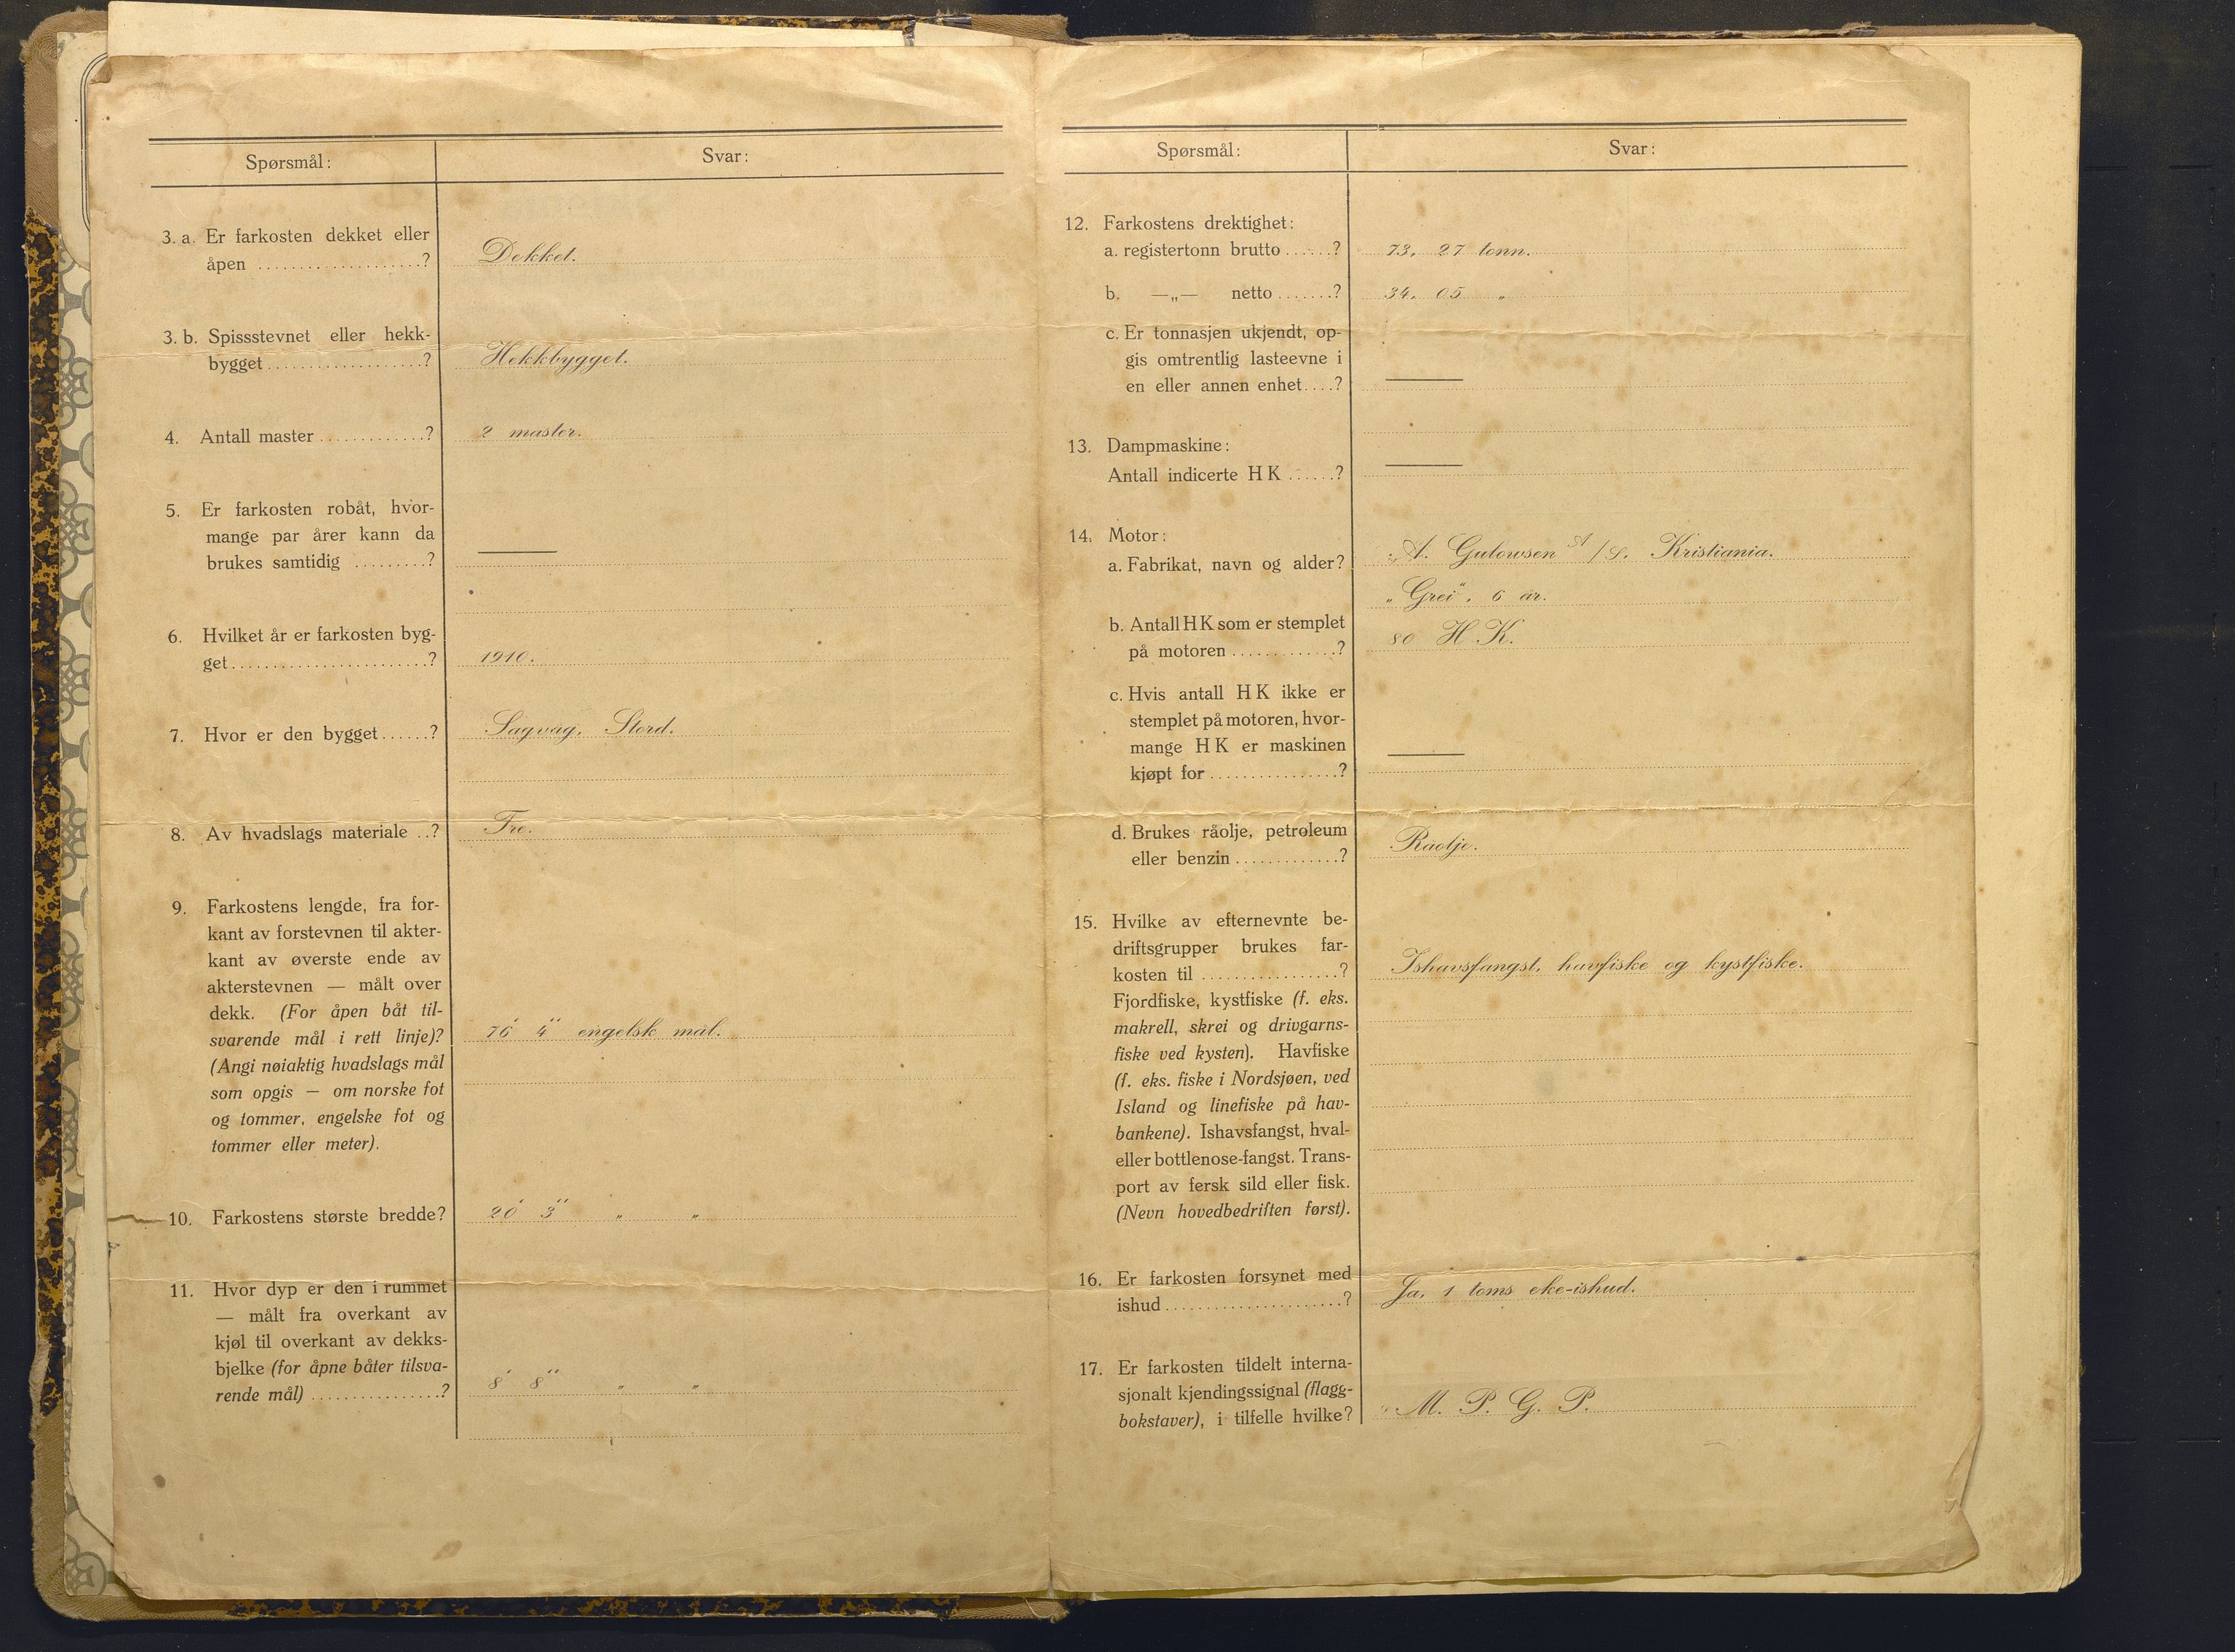 Spørsmål:
Svar:
3. a. Er farkosten dekket eller
åpen ....................?
Dekket.
3. b. Spissstevnet eller hekk-
bygget...................?
Hekkbygget.
4. Antall master.............?
2 master.
5. Er farkosten robåt, hvor-
mange par årer kann da
brukes samtidig .........?
—
6. Hvilket år er farkosten byg-
get........................?
1910.
7. Hvor er den bygget......?
Sagvåg, Stord.
8. Av hvadslags materiale ..?
Tre.
9. Farkostens lengde, fra for-
kant av forstevnen til akter-
kant av øverste ende av
akterstevnen — målt over
dekk. (For åpen båt til-
svarende mål i rett linje)?
76' 4" engelsk mål.
(Angi nøiaktig hvadslags mål
som opgis — om norske fot
og tommer, engelske fot og
tommer eller meter).
10. Farkostens største bredde?
20' 3" " "
11. Hvor dyp er den i rummet
— målt fra overkant av
kjøl til overkant av dekks-
bjelke (for åpne båter tilsva-
rende mål) ................?
8' 8" " "
Spørsmål:
Svar:
12. Farkostens drektighet:
a. registertonn brutto ......?
73, 27 tonn.
b. —„— netto .......?
34, 05 "
c. Er tonnasjen ukjendt, op-
gis omtrentlig lasteevne i
en eller annen enhet....?
—
13. Dampmaskine:
Antall indicerte H K ......?
—
14. Motor:
a. Fabrikat, navn og alder?
"A. Gulowsen A/S. Kristiania.
"Grei". 6 år.
b. Antall H K som er stemplet
på motoren .............?
80 H.K.
c. Hvis antall H K ikke er
stemplet på motoren, hvor-
mange H K er maskinen
kjøpt for ................?
—
d. Brukes råolje, petroleum
eller benzin .............?
Råolje.
15. Hvilke av efternevnte be-
driftsgrupper brukes far-
kosten til .................?
Ishavsfangst, havfiske og kystfiske.
Fjordfiske, kystfiske (f. eks.
makrell, skrei og drivgarns-
fiske ved kysten). Havfiske
(f. eks. fiske i Nordsjøen, ved
Island og linefiske på hav-
bankene). Ishavsfangst, hval-
eller bottlenose-fangst. Trans-
port av fersk sild eller fisk.
(Nevn hovedbedriften først).
16. Er farkosten forsynet med
ishud......................?
Ja, 1 toms eke-ishud.
17. Er farkosten tildelt interna-
sjonalt kjendingssignal (flagg-
bokstaver), i tilfelle hvilke?
M. P. G. P.